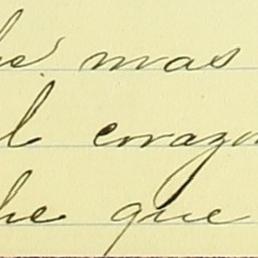 he mas
l corazo
he que